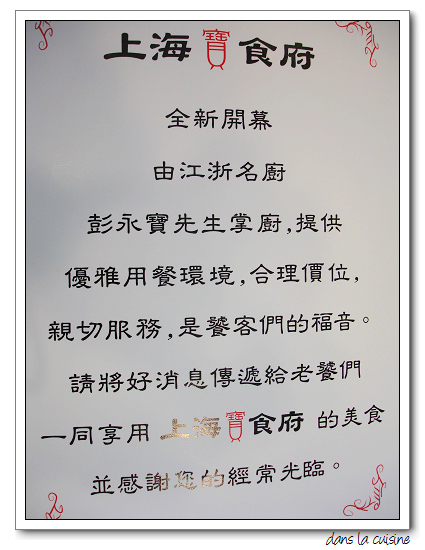 上海寶食府
全新開幕
由江浙名廚
彭永寶先生掌廚,提供
優雅用餐環境,合理價位,
親切服務,是饕客們的福音。
請將好消息傳遞給老饕們
一同享用 上海寶食府 的美食
並感謝您的經常光臨。
dans la cuisine